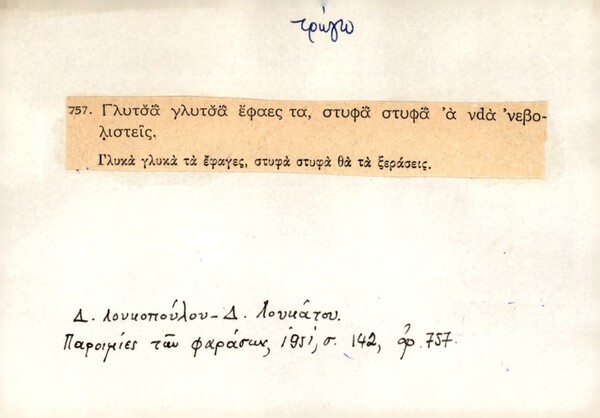 τρώγω
757. Γλυτσ̌ᾰ́ γλυτσ̌ᾰ́ ἔφαες τα, στυφᾰ́ στυφᾰ́ 'ὰ νdὰ 'νεβο-
λιστεῖς.
Γλυκὰ γλυκὰ τὰ ἔφαγες, στυφὰ στυφὰ θὰ τὰ ξεράσεις.
Δ. Λουκοπούλου - Δ. Λουκάτου.
Παροιμίες τῶν Φαράσων, 1951, σ. 142, ἀρ. 757.